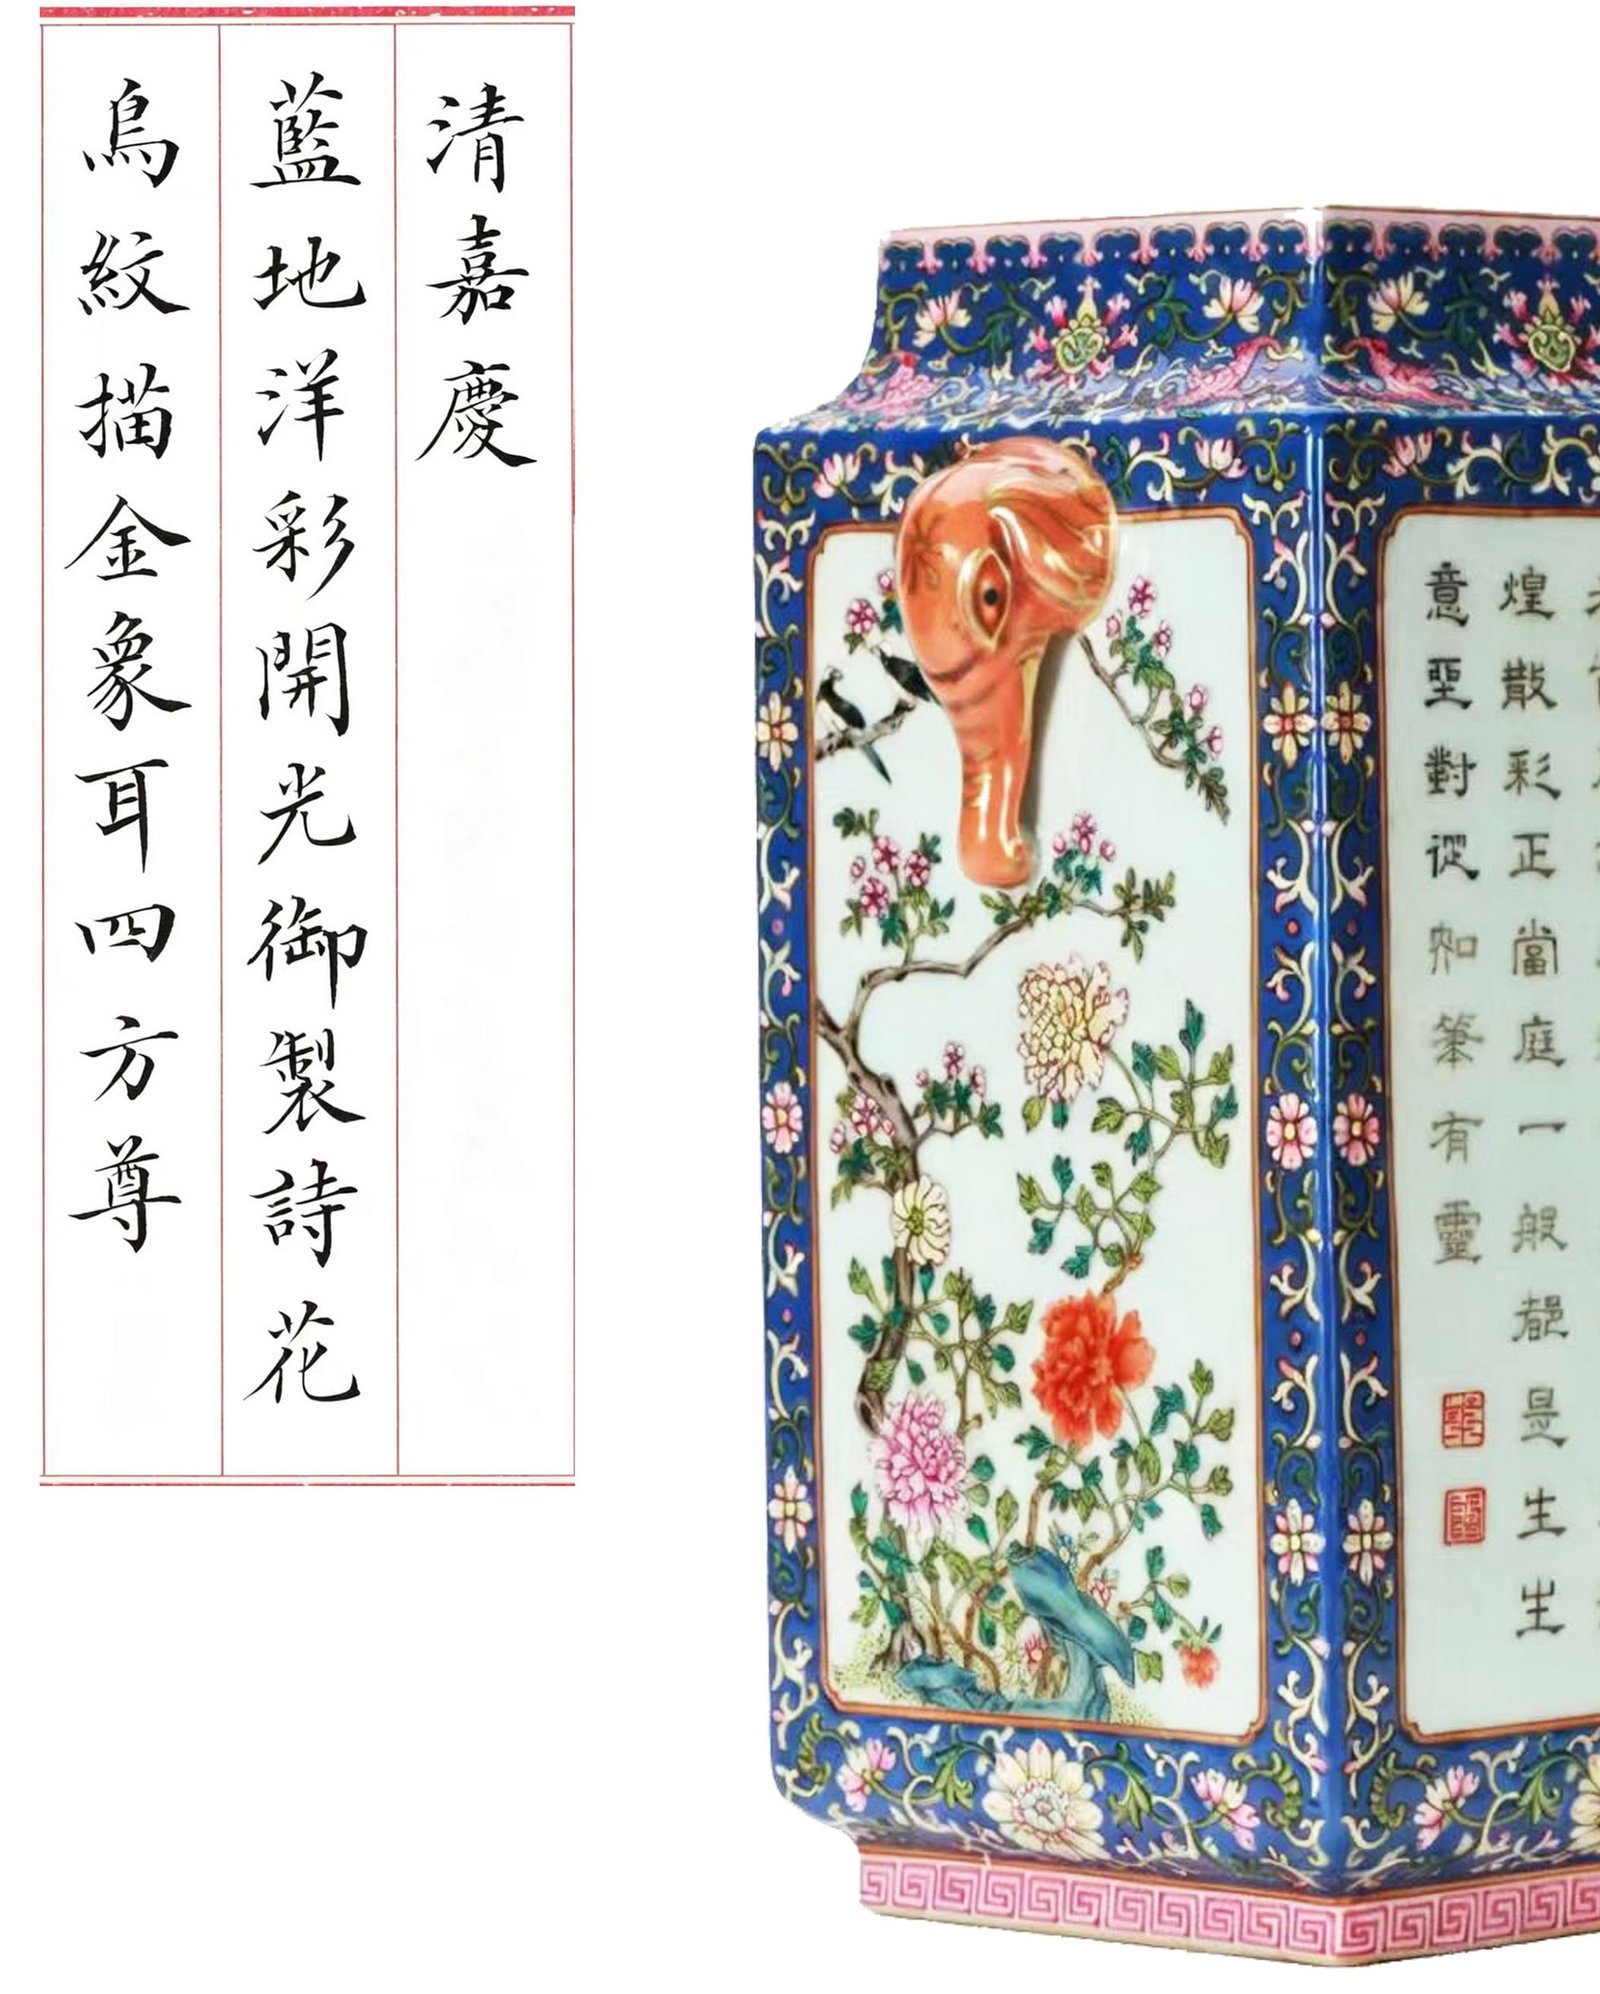 清嘉慶
藍地洋彩開光御製詩花
鳥紋描金象耳四方尊
煌散彩正當庭一般都是生生
意聖對從知筆有靈